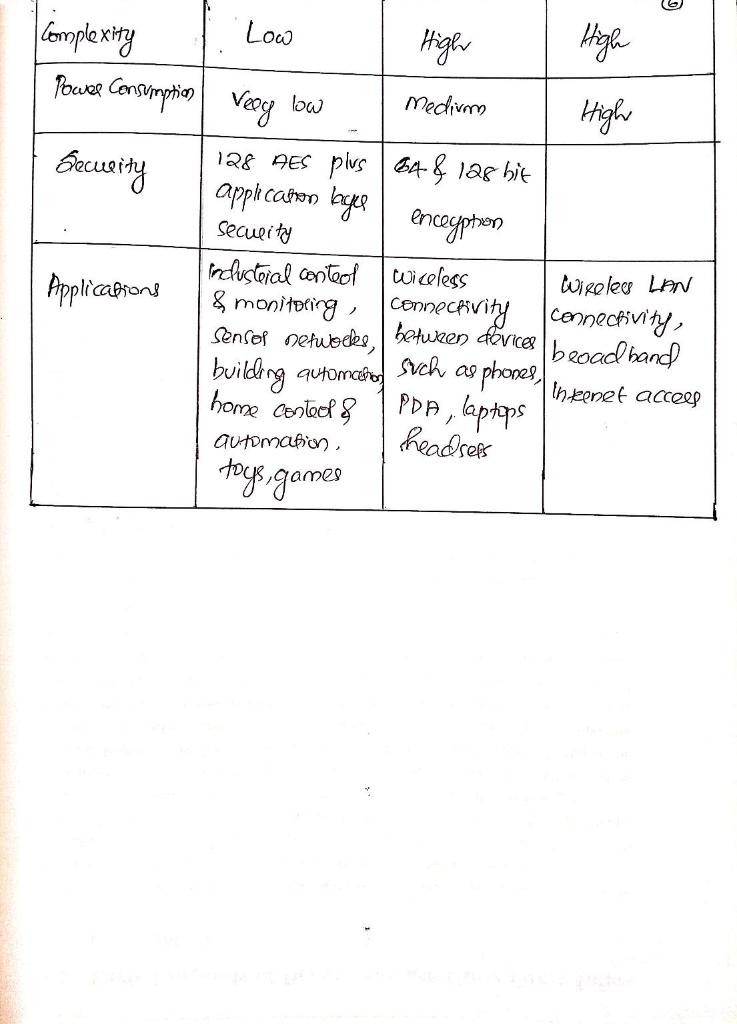 6
Complexity
Low
High
High
Power Consumption
Very low
Medium
High
Security
128 AES plus
application layer
security
64 & 128 bit
encryption
Applications
Industrial control
& monitoring,
sensor networks,
building automation
home control &
automation,
toys, games
Wireless
connectivity
between devices
such as phones,
PDA, laptops
headsets
Wireless LAN
connectivity,
broadband
Internet access